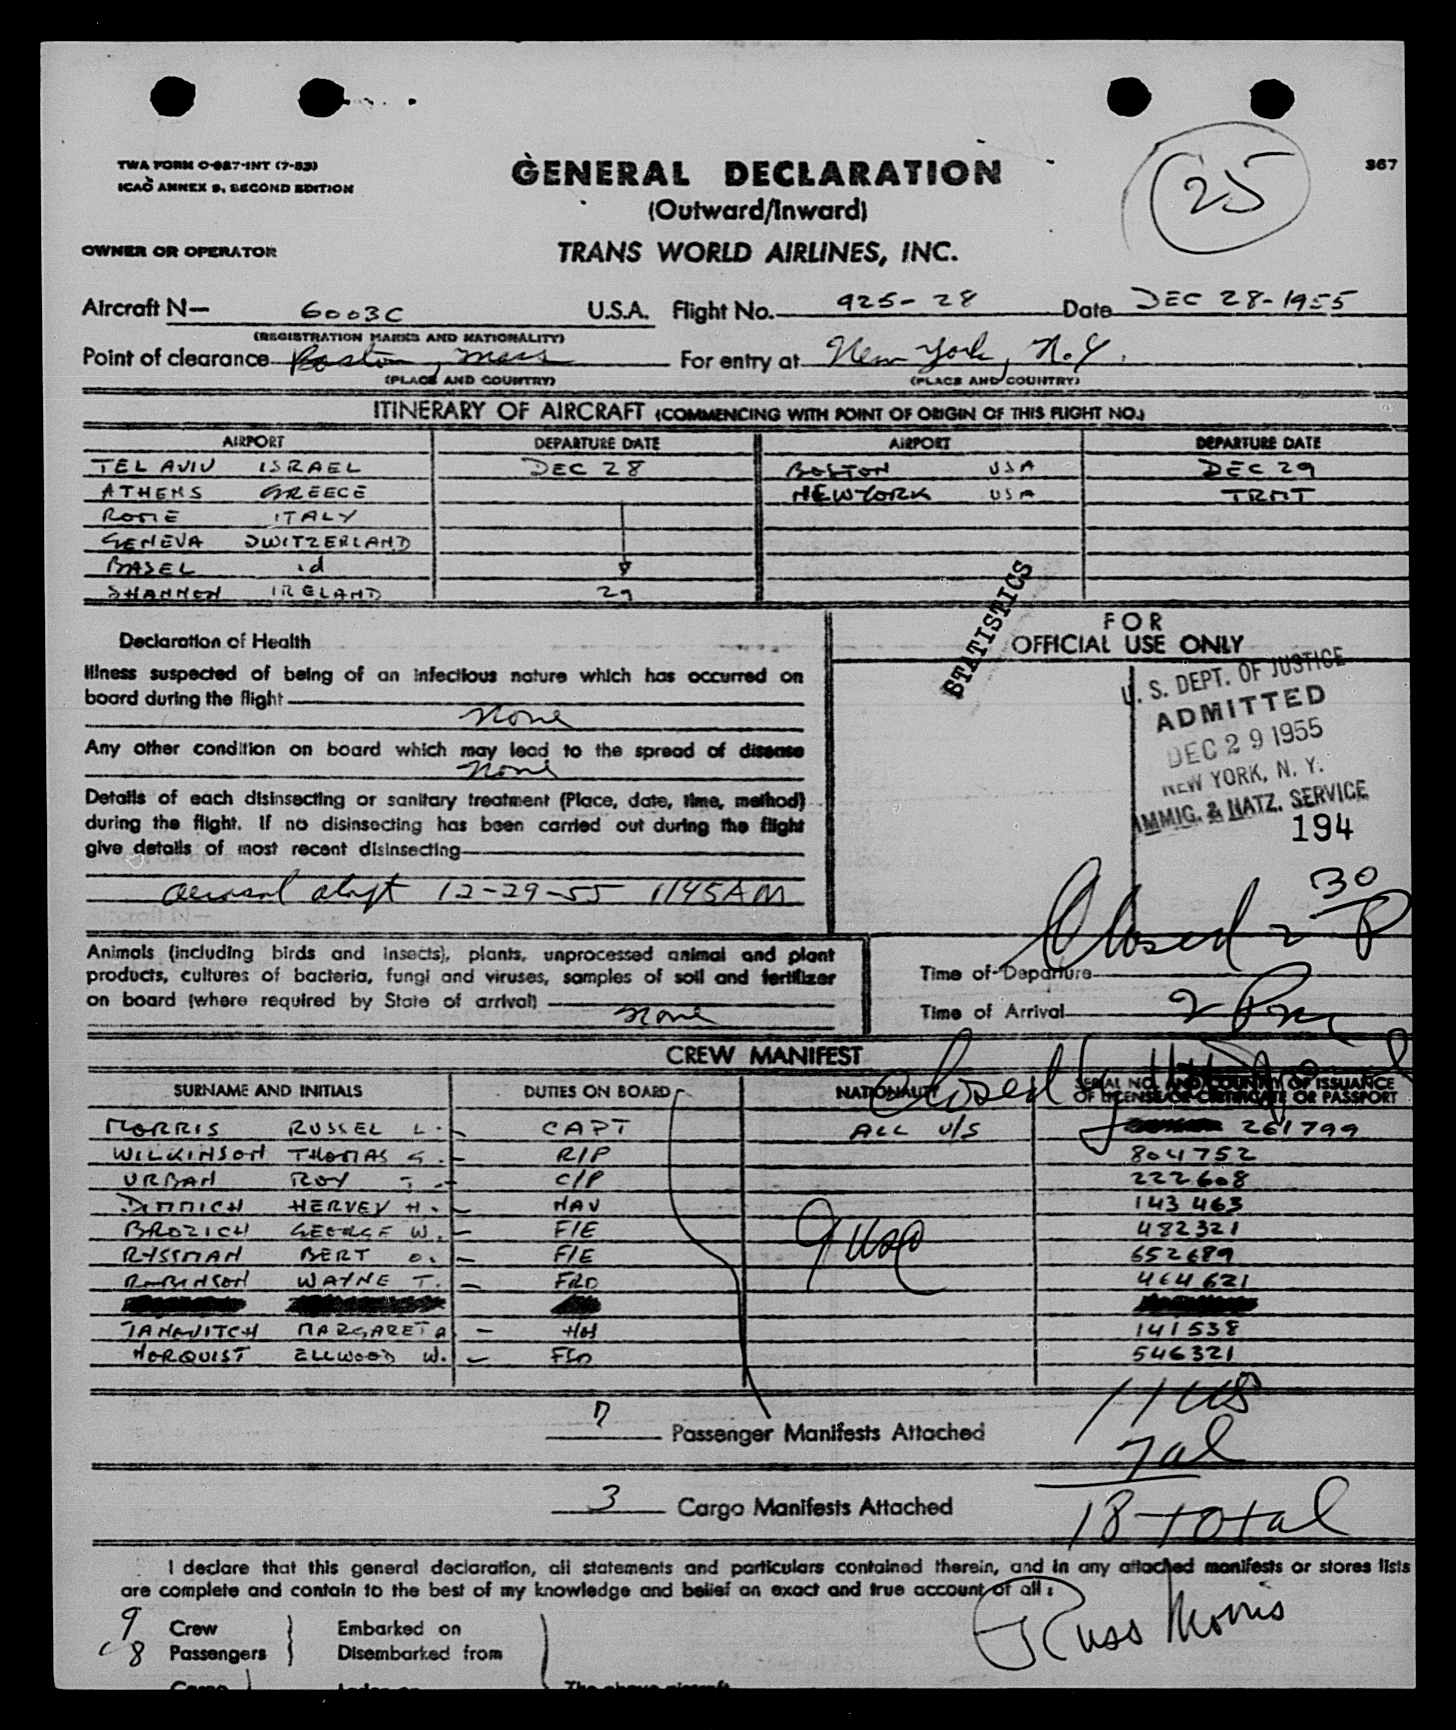 TWA FORM O-987-INT (7-53)
ICAO ANNEX 9, SECOND EDITION
GENERAL DECLARATION
(Outward/Inward)
25
367
OWNER OR OPERATOR
TRANS WORLD AIRLINES, INC.
Aircraft N— 6003C U.S.A. Flight No. 925-28 Date DEC 28-1955
(REGISTRATION MARKS AND NATIONALITY)
Point of clearance Boston, Mass For entry at New York, N.Y.
(PLACE AND COUNTRY) (PLACE AND COUNTRY)
ITINERARY OF AIRCRAFT (COMMENCING WITH POINT OF ORIGIN OF THIS FLIGHT NO.)
AIRPORT DEPARTURE DATE AIRPORT DEPARTURE DATE
TEL AVIV ISRAEL DEC 28 BOSTON USA DEC 29
ATHENS GREECE NEW YORK USA TRMT
ROME ITALY
GENEVA SWITZERLAND
BASEL id
SHANNON IRELAND 29
STATISTICS
FOR
OFFICIAL USE ONLY
Declaration of Health
Illness suspected of being of an infectious nature which has occurred on
board during the flight
None
Any other condition on board which may lead to the spread of disease
None
Details of each disinsecting or sanitary treatment (Place, date, time, method)
during the flight. If no disinsecting has been carried out during the flight
give details of most recent disinsecting
aerosol 12-29-55 1145AM
U. S. DEPT. OF JUSTICE
ADMITTED
DEC 29 1955
NEW YORK, N. Y.
IMMIG. & NATZ. SERVICE
194
Closed 2 30 P
Animals (including birds and insects), plants, unprocessed animal and plant
products, cultures of bacteria, fungi and viruses, samples of soil and fertilizer
on board (where required by State of arrival)
None
Time of Departure
Time of Arrival 2 Pm
CREW MANIFEST
Closed by
SURNAME AND INITIALS DUTIES ON BOARD NATIONALITY SERIAL NO. AND COUNTRY OF ISSUANCE
OF LICENSE OR CERTIFICATE OR PASSPORT
MORRIS RUSSEL L. CAPT ALL U/S 261799
WILKINSON THOMAS G. R/P 804752
URBAN ROY J. C/P 222608
DIMMICH HERVEY H. NAV 143463
BROZICH GEORGE W. F/E 482321
RYSSMAN BERT O. F/E 652689
ROBINSON WAYNE T. 464621
MARGARET A HH 141538
NORQUIST ELLWOOD W. 546321
9 usa
11 US
7 al
18 total
7 Passenger Manifests Attached
3 Cargo Manifests Attached
I declare that this general declaration, all statements and particulars contained therein, and in any attached manifests or stores lists
are complete and contain to the best of my knowledge and belief an exact and true account of all:
9 Crew Embarked on
8 Passengers Disembarked from
Russ Morris